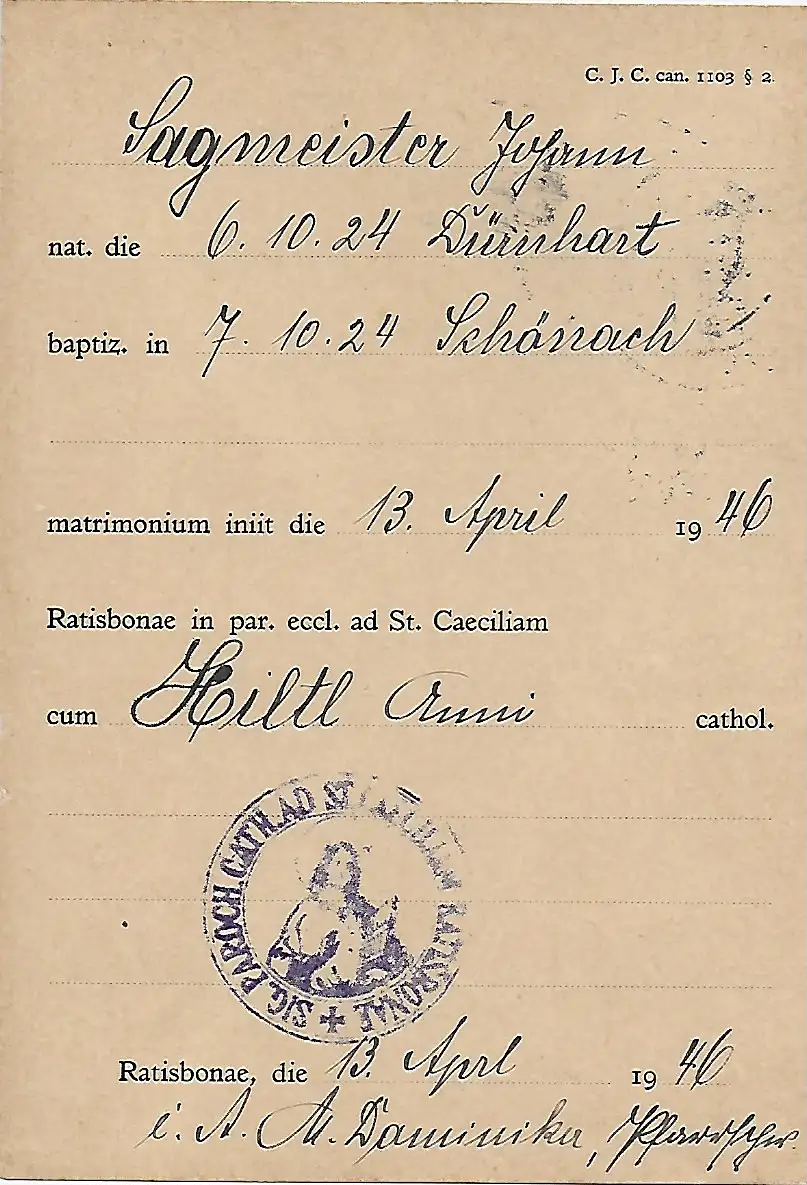 C. J. C. can. 1103 § 2.
Sagmeister Johann
nat. die 6. 10. 24 Dürnhart
baptiz. in 7. 10. 24 Schönach
matrimonium iniit die 13. April 1946
Ratisbonae in par. eccl. ad St. Caeciliam
cum Hiltl Anni cathol.
SIG. PAROCH. CATH. AD ST. CAECILIAM RATISBONAE
Ratisbonae, die 13. Aprl 1946
i. A. M. Dominika, Pfarrschw.